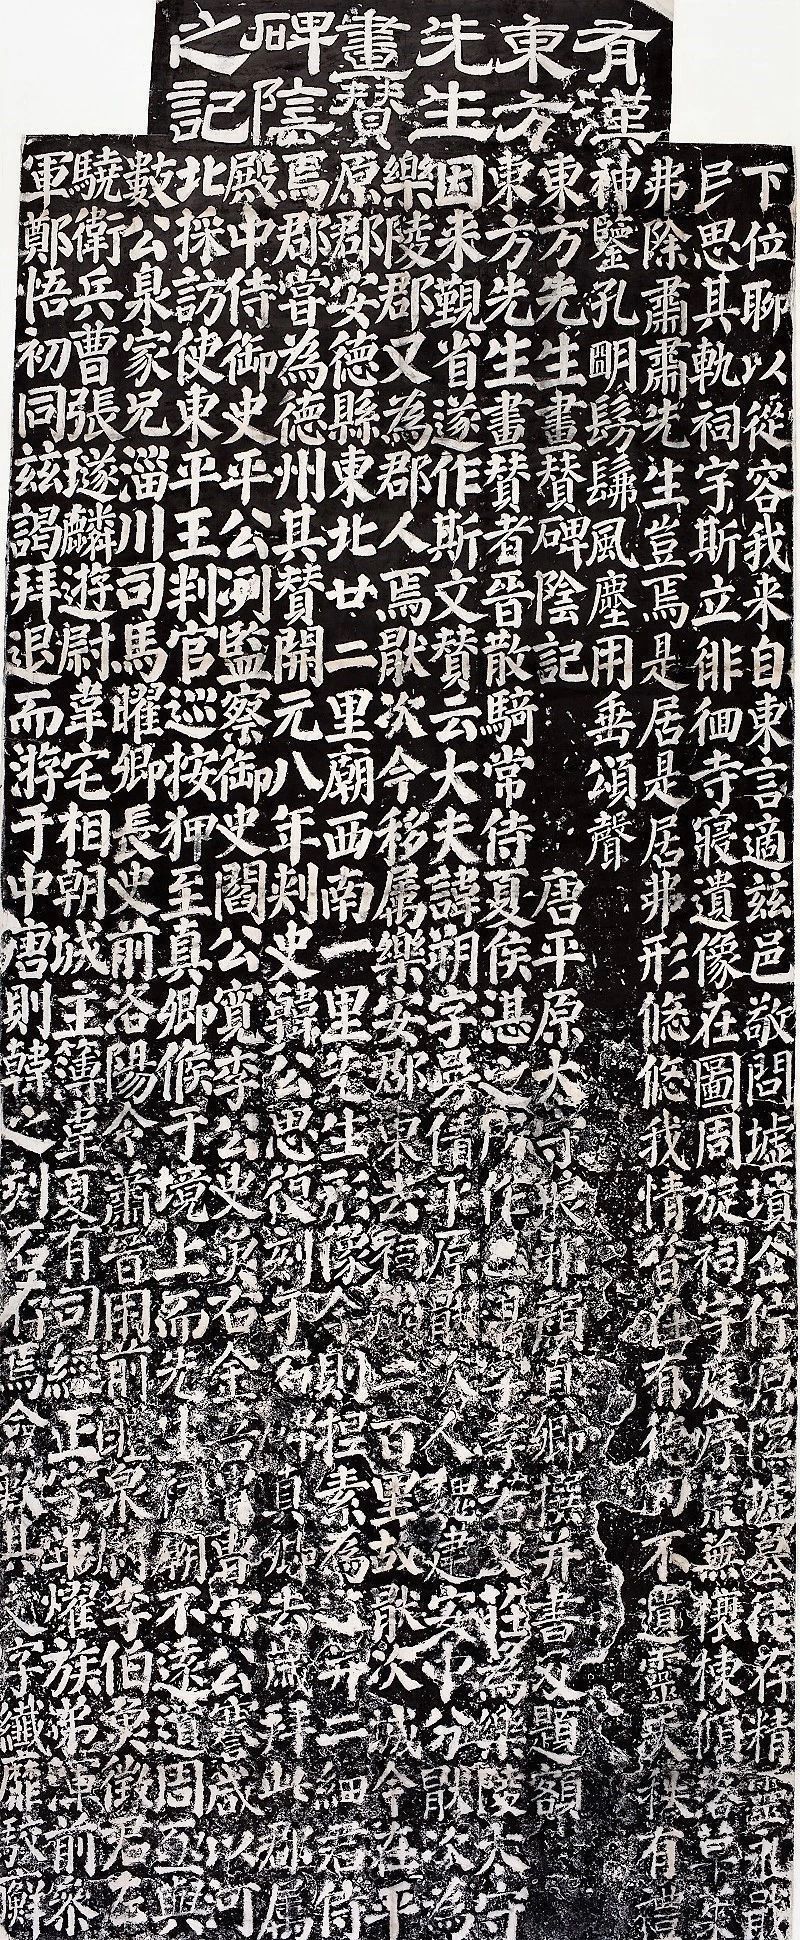 有漢
東方
先生
畫贊
碑陰
之記
下位聊以從容我来自東言適茲邑敬問墟墳企佇原隰墟墓徒存精靈永戢
民思其軌祠宇斯立徘徊寺寢遺像在圖周旋祠宇庭序荒蕪榱棟傾落草萊
弗除肅肅先生豈焉是居是居弗形悠悠我情昔在有德罔不遺靈天秩有禮
神鑒孔明髣髴風塵用垂頌聲
東方先生畫贊碑陰記 唐平原太守琅邪顏真卿撰并書及題額
東方先生畫贊者晉散騎常侍夏侯湛之所作湛字孝若父莊為樂陵太守
因来覲省遂作斯文贊云大夫諱朔字曼倩平原厭次人魏建安中分厭次為
樂陵郡又為郡人焉厭次今移属樂安郡東去祠廟二百里故厭次城今在平
原郡安德縣東北廿二里廟西南一里先生形像今則捏素為之并二細君侍
焉郡嘗為德州其贊開元八年刺史韓公思復刻于石碑真卿去歲拜此郡属
殿中侍御史平公冽監察御史閻公寬李公史魚右金吾胄曹宋公謇咸以河
北採訪使東平王判官巡按狎至真卿候于境上而先生祠廟不遠道周亟與
數公泉家兄淄川司馬曜卿長史前洛陽令蕭晉用前醴泉尉李伯魚徵君左
驍衛兵曹張璲麟遊尉韋宅相朝城主簿韋夏有司經正字畢燿族弟渾前叅
軍鄭悟初同兹謁拜退而游于中唐則韓之刻石存焉僉歎其文字纖靡駁鮮